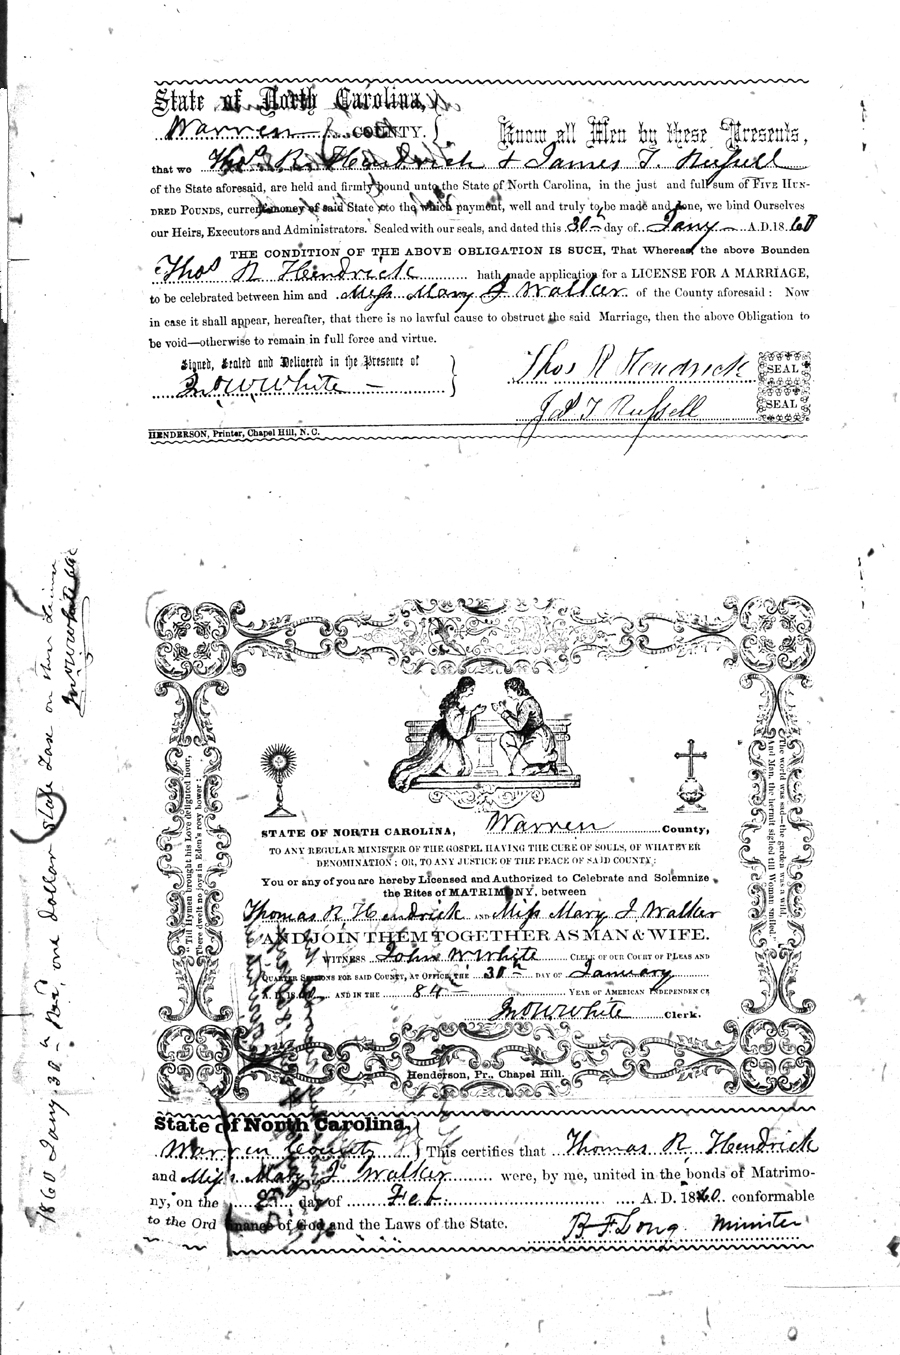 State of North Carolina,
Warren COUNTY.
Know all Men by these Presents,
that we Thos. R. Hendrick & James T. Russell
of the State aforesaid, are held and firmly bound unto the State of North Carolina, in the just and full sum of FIVE HUN-
DRED POUNDS, current money of said State to the which payment, well and truly to be made and done, we bind Ourselves
our Heirs, Executors and Administrators. Sealed with our seals, and dated this 30th day of Jany A.D. 1860
THE CONDITION OF THE ABOVE OBLIGATION IS SUCH, That Whereas, the above Bounden
Thos R Hendrick hath made application for a LICENSE FOR A MARRIAGE,
to be celebrated between him and Miss Mary J Walker of the County aforesaid: Now
in case it shall appear, hereafter, that there is no lawful cause to obstruct the said Marriage, then the above Obligation to
be void—otherwise to remain in full force and virtue.
Signed, Sealed and Delivered in the Presence of
Jno W White
Thos R Hendrick SEAL
Jas T Russell SEAL
HENDERSON, Printer, Chapel Hill, N. C.
1860 Jany 30th Recd, one dollar State Tax on this
Jno W White clk
"Till Hymen brought his Love delighted hour,
There dwelt no joys in Eden's rosy bower:
The world was sad—the garden was a wild,
And Man, the hermit sighed till Woman smiled."
STATE OF NORTH CAROLINA, Warren County,
TO ANY REGULAR MINISTER OF THE GOSPEL HAVING THE CURE OF SOULS, OF WHATEVER
DENOMINATION; OR, TO ANY JUSTICE OF THE PEACE OF SAID COUNTY:
You or any of you are hereby Licensed and Authorized to Celebrate and Solemnize
the Rites of MATRIMONY, between
Thomas R Hendrick AND Miss Mary J Walker
AND JOIN THEM TOGETHER AS MAN & WIFE.
WITNESS John W White CLERK OF OUR COURT OF PLEAS AND
QUARTER SESSIONS FOR SAID COUNTY, AT OFFICE, THE 30th DAY OF January
A. D. 1860 AND IN THE 84th YEAR OF AMERICAN INDEPENDENCE
Jno W White Clerk.
Henderson, Pr., Chapel Hill.
State of North Carolina,
Warren County This certifies that Thomas R Hendrick
and Miss Mary J Walker were, by me, united in the bonds of Matrimo-
ny, on the day of Feb. A. D. 1860. conformable
to the Ordinance of God and the Laws of the State. B F Long Minister